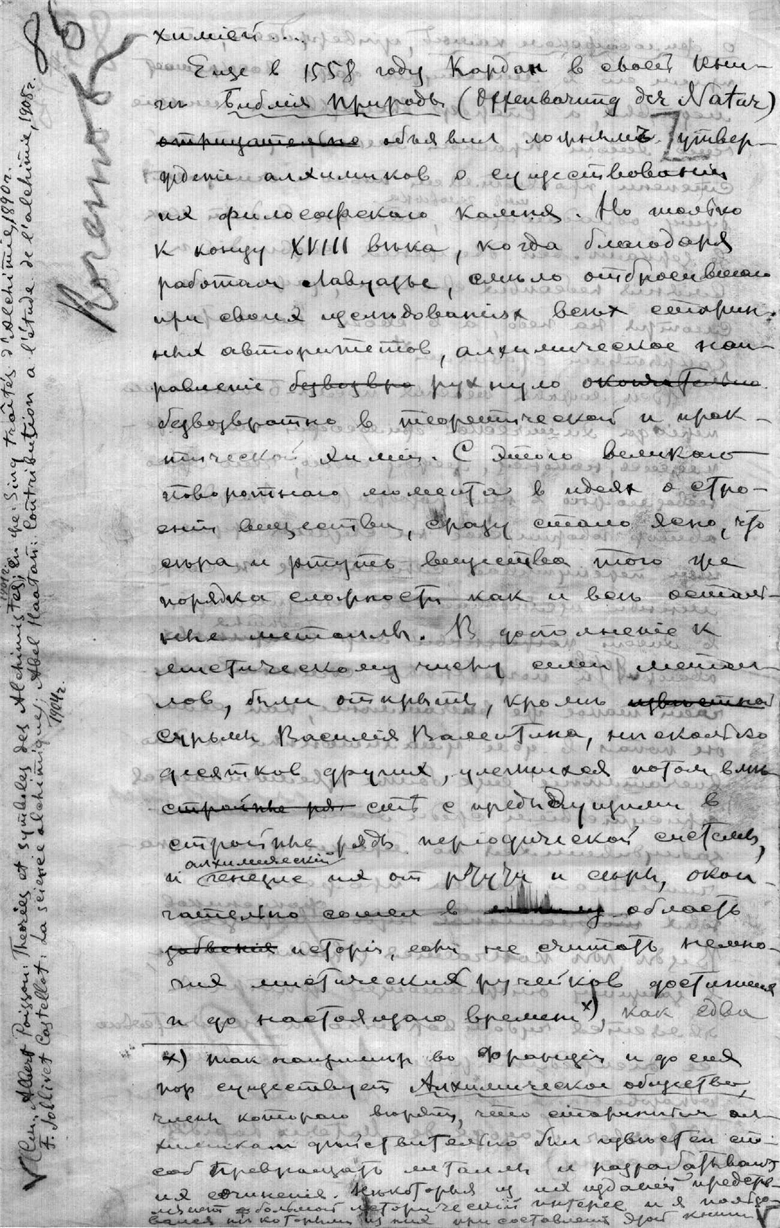 85
химіей...
Еще в 1558 году Кардан в своей кни-
ги Библия Природы (Offenbarung der Natur)
отрицательно объявил ложным утвер-
ждение алхимиков о существовании
их философскаго камня. Но только
к концу XVIII века, когда благодаря
работам Лавуазье, смело отбросившаго
при своих изследованіях всех старин-
ных авторитетов, алхимическое нап-
равленіе безвозвра рухнуло окончательно
безвозвратно в теоретической и прак-
тической химіи. С этого великаго
поворотнаго момента в идеях о стро-
еніи вещества, сразу стало ясно, что
сера и ртуть вещества того же
порядка сложности как и все осталь-
ные металлы. В дополненіе к
мистическому числу семи метал-
лов, были открыты, кроме известной
сурьмы Василія Валентина, несколько
десятков других, улегшихся потом вме-
стройные ря сте с предъидущими в
стройные ряды періодической системы,
алхимическій
и генезис их от ртути и серы, окон-
чательно сошел в область
забвенія исторіи, если не считать немно-
гих мистических ручейков достигших
и до настоящаго времени x), как едва
x) так например во Франціи и до сих
пор существует Алхимическое общество,
члены котораго верят, что старинным ал-
химикам действительно был известен спо-
соб превращать металлы и разрабатывают
их сочиненія. Некоторыя из их изданій предста-
вляют большой историческій интерес и я пользо-
вался некоторыми из них при составленіи этой книги
См. Albert Poisson: Théories et symboles des Alchimistes; Cinq traités d'alchimie, 1890 г.
F. Jollivet Castellot: La science alchimique, 1904 г. Abel Haatan: Contribution a l'étude de l'alchimie, 1905 г.